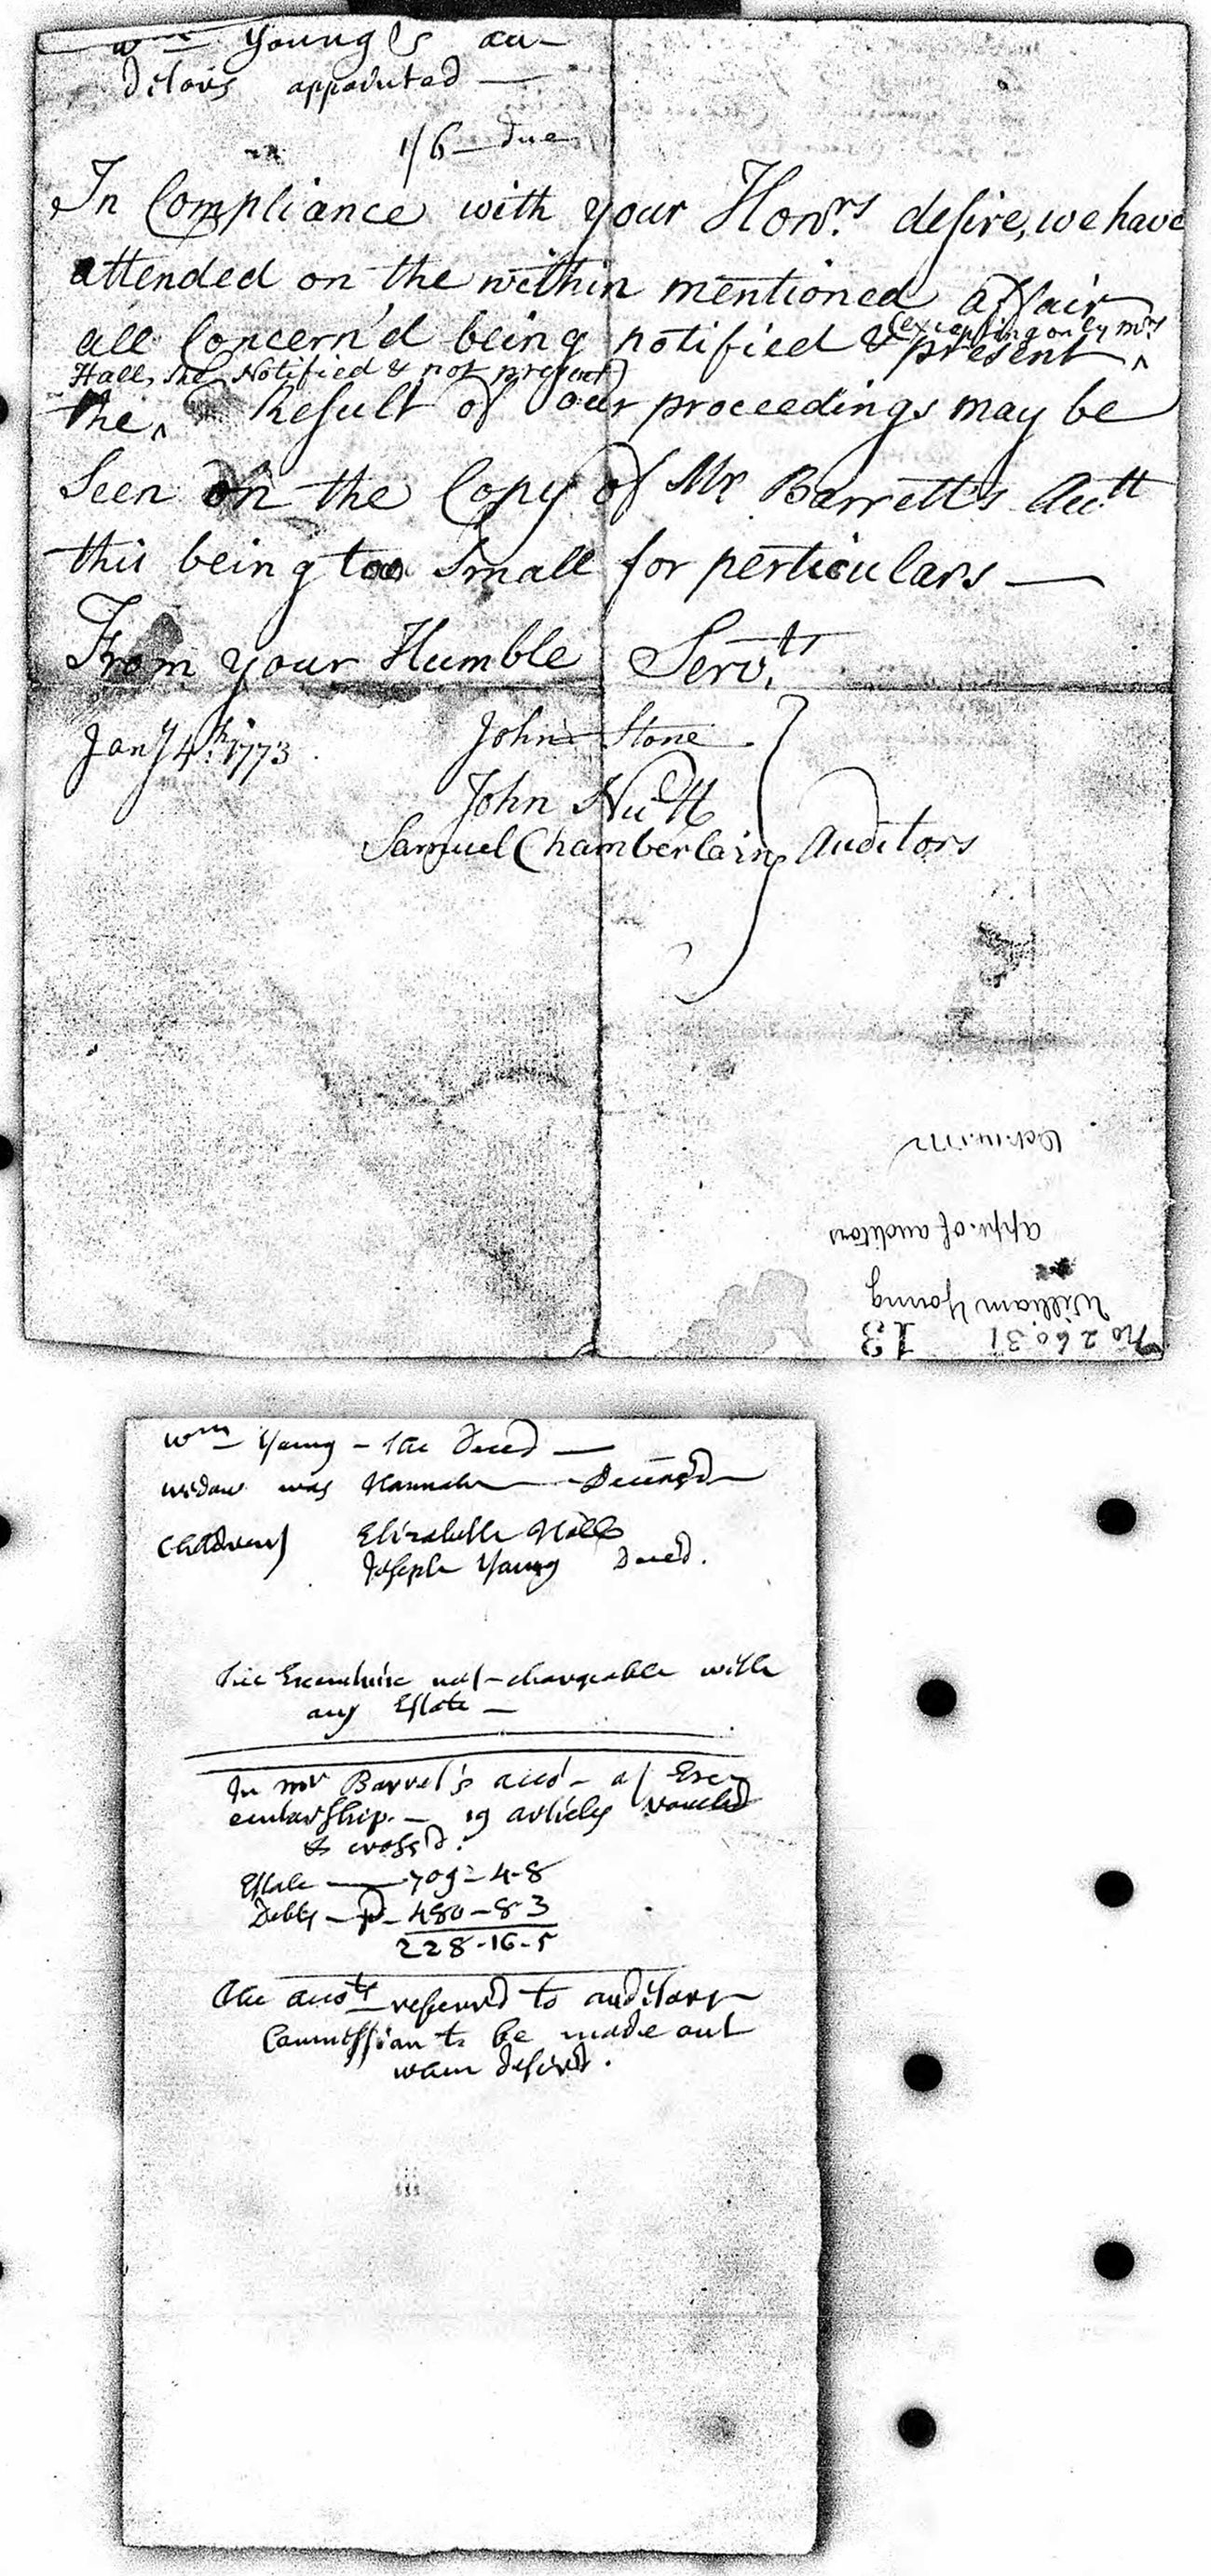 Wm Young's au-
ditors appointed —
1/6 due
In Compliance with your Honrs. desire, we have
attended on the within mentioned affair
all Concern'd being notified & present ^
(excepting only Mrs
Hall, she Notified & not present)
the ^ Result of our proceedings may be
Seen on the Copy of Mr Barrett's Acctt
this being too Small for perticulars —
From your Humble Servts.
Jany 4th. 1773.
John Stone
John Nutt
Samuel Chamberlain Auditors
Oct. 14. 1772
App. of auditors
William Young
13
No 26031
Wm Young — the Deced —
widow was Hannah — Deceas'd —
Children Elizabeth Hall
Joseph Young Deced.
The Executrix not chargeable with
any Estate —
In Mr Barret's acco- of Exe-
cutorship. — 19 articles vouched
& cross'd.
Estate — 709 - 4 - 8
Debts — p - 480 - 8 3
228 - 16 - 5
The accots referred to auditors —
Commission to be made out
when desir'd.